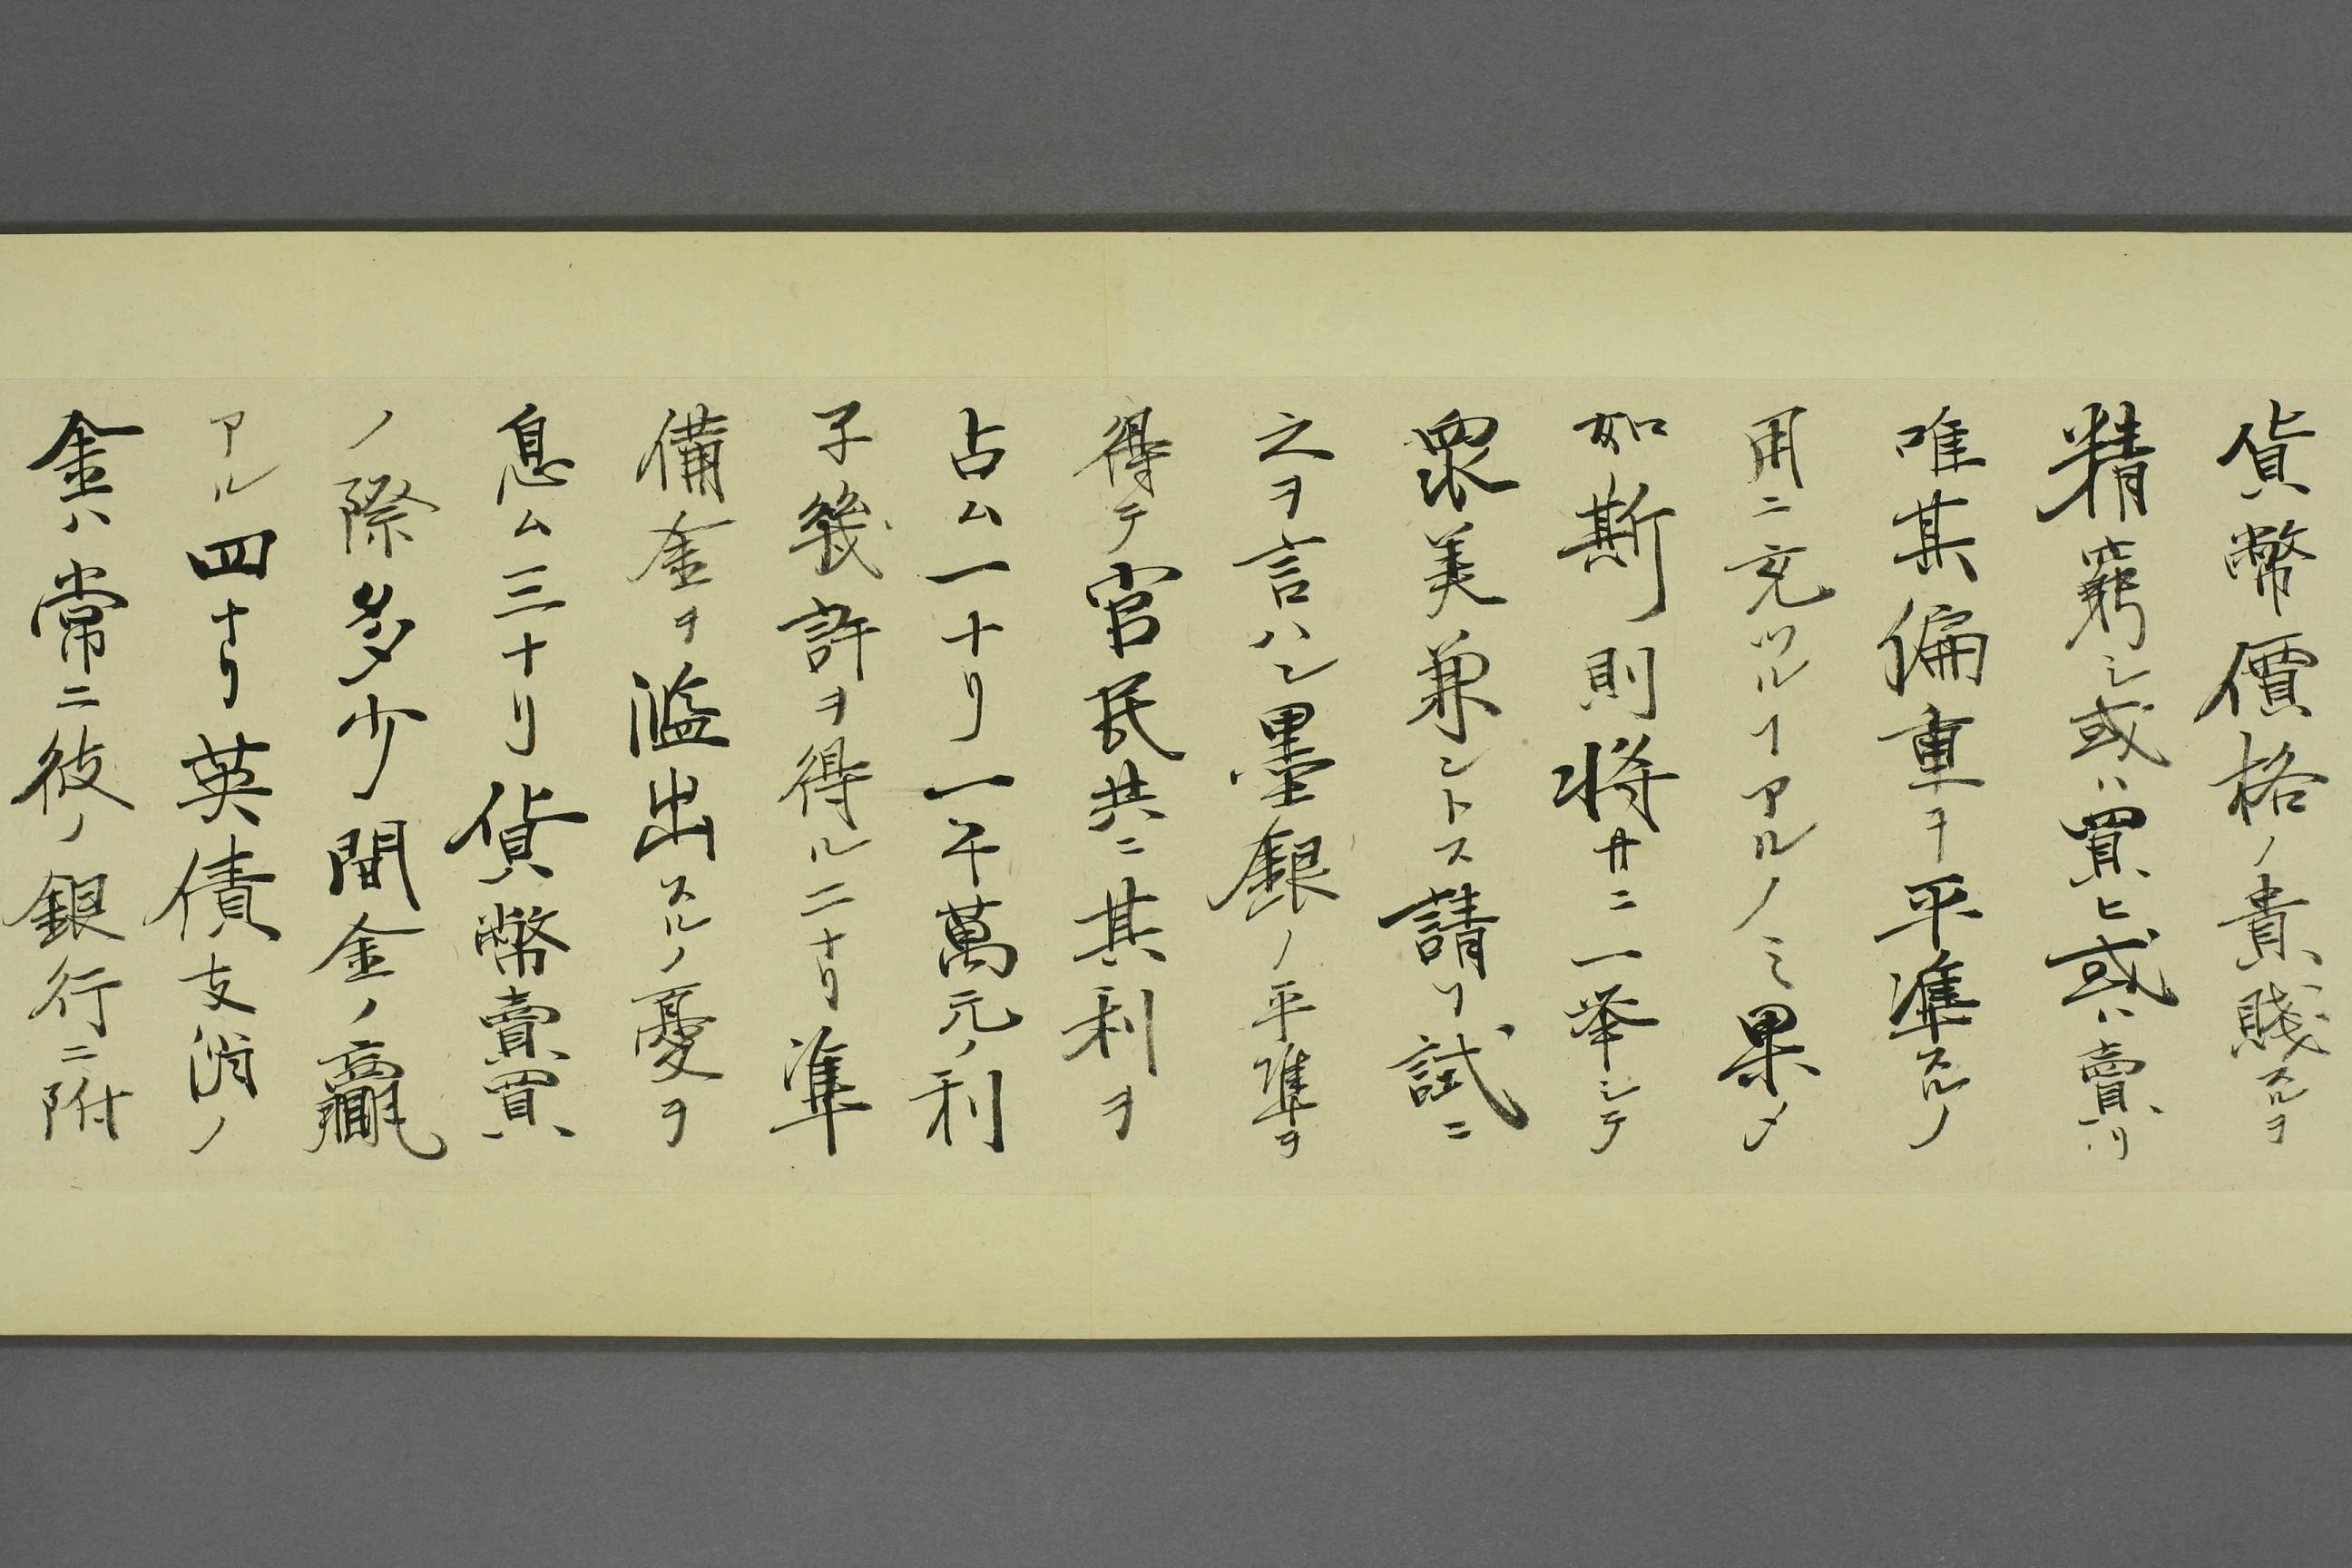 貨幣價格ノ貴賤スルヲ
精窮シ或ハ買ヒ或ハ賣リ
唯其偏重ヲ平準スルノ
用ニ充ツルヿアルノミ果〆
如斯則将サニ一挙シテ
衆美兼シトス請フ試ニ
之ヲ言ハン墨銀ノ平準ヲ
得テ官民共ニ其利ヲ
占ム一ナリ一千萬元ノ利
子幾許ヲ得ル二ナリ準
備金ヲ濫出スルノ憂ヲ
息ム三ナリ貨幣賣買
ノ際多少間金ノ贏
アル四ナリ英債支消ノ
金ハ常ニ彼ノ銀行ニ附